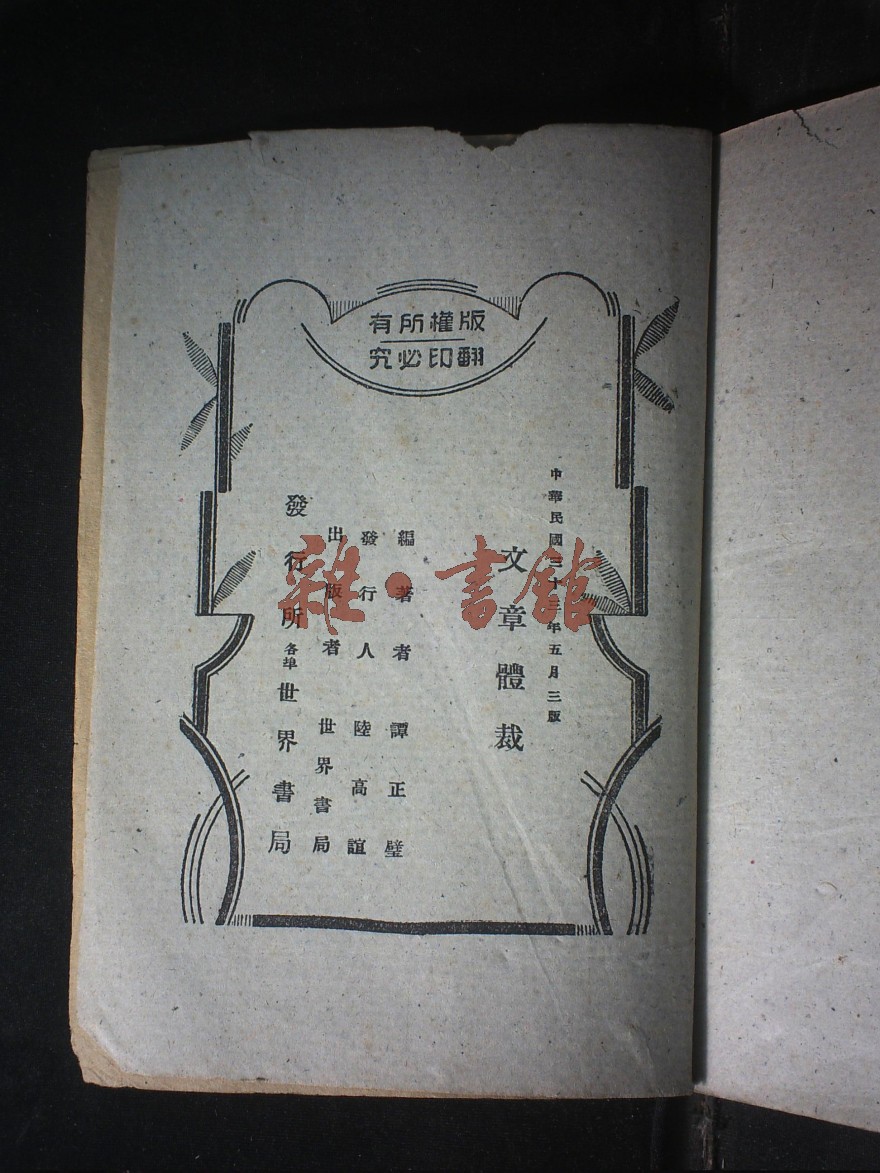 版權所有
翻印必究
中華民國三十三年五月三版
文章體裁
編著者 譚正璧
發行人 陸高誼
出版者 世界書局
發行所 各埠 世界書局
雜·書館